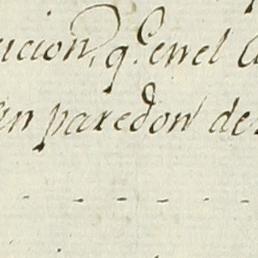 icion, q.e en el
un paredon de